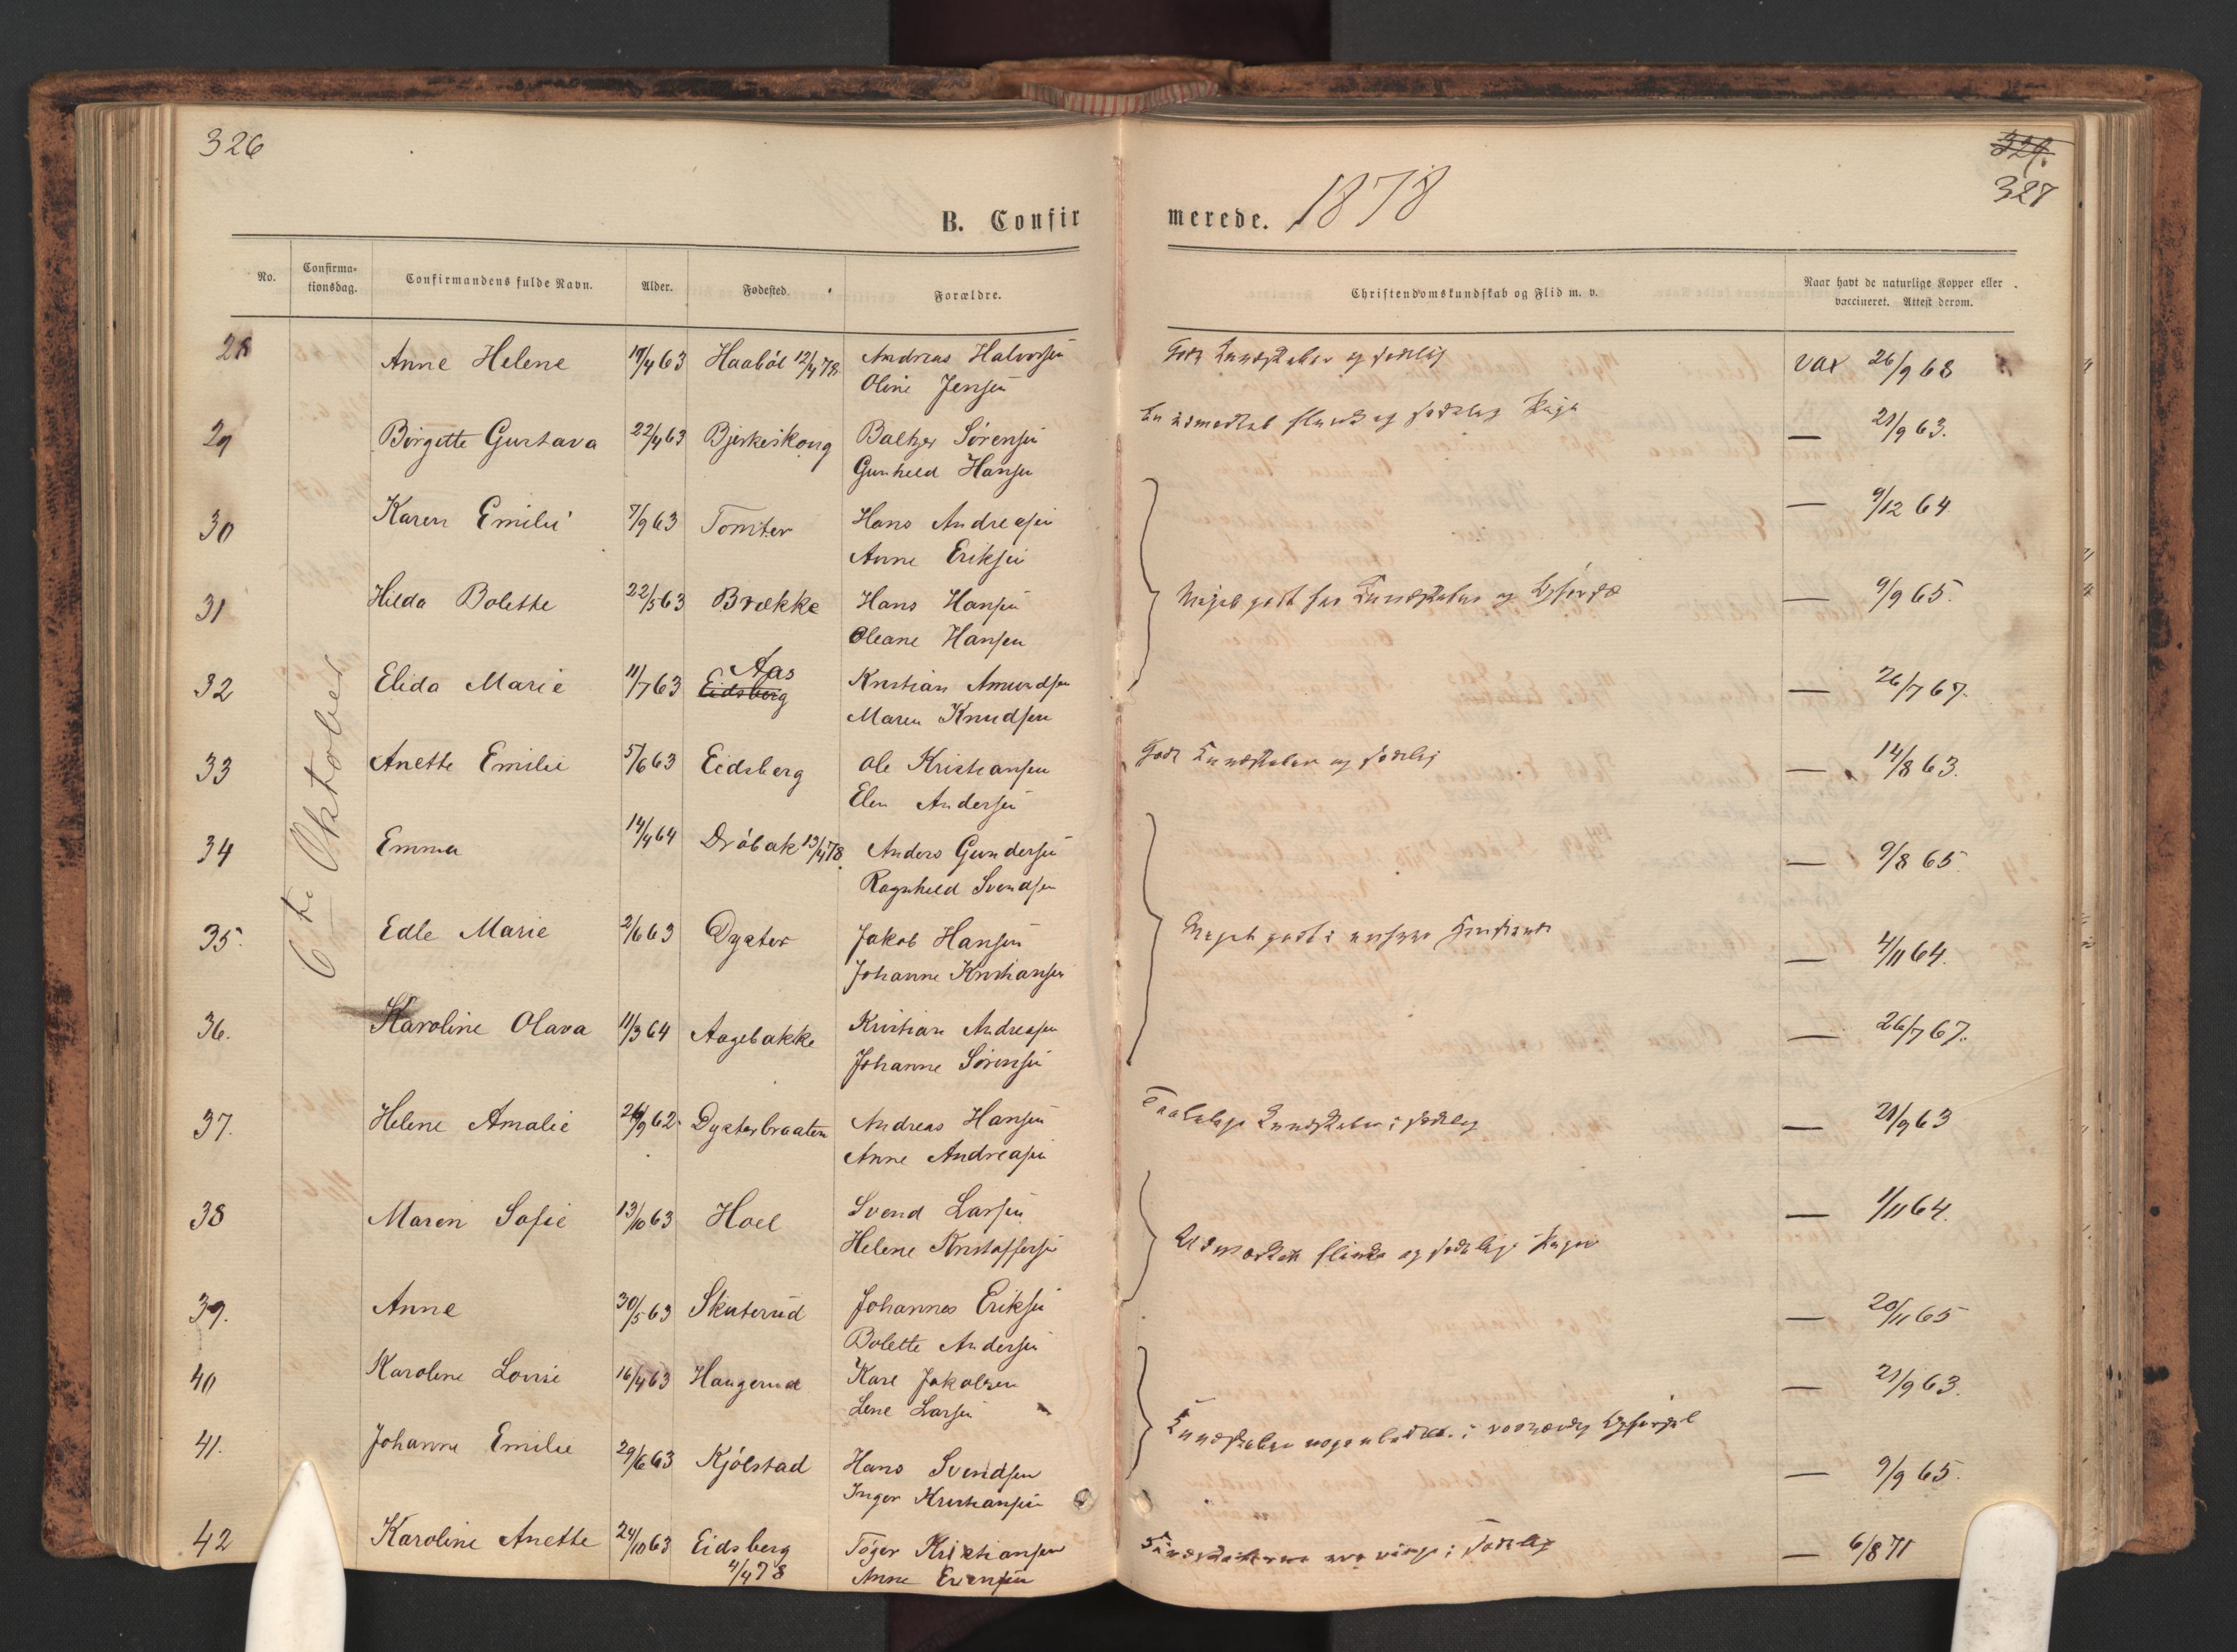 326
B. Confir
No.
Confirma-
tionsdag.
Confirmandens fulde Navn.
Alder.
Fødested.
Forældre.
6te Oktober
28 Anne Helene 17/4 63 Haabøl 12/4 78 Andreas Halvorsen
Oline Jensen
29 Birgitte Gustava 22/4 63 Bjerkeskoug Baltzer Sørensen
Gunhild Hansen
30 Karen Emilie 7/9 63 Tomter Hans Andreasen
Anne Eriksen
31 Hilda Bolette 22/5 63 Brække Hans Hansen
Oleane Hansen
32 Elida Marie 11/7 63 Aas Eidsberg Kristian Amundsen
Maren Knudsen
33 Anette Emilie 5/6 63 Eidsberg Ole Kristiansen
Elen Andersen
34 Emma 14/4 64 Drøbak 13/4 78 Anders Gundersen
Ragnhild Svendsen
35. Edle Marie 2/6 63 Dyster Jakob Hansen
Johanne Kristiansen
36. Karoline Olava 11/3 64 Aagebakke Kristian Andreasen
Johanne Sørensen
37. Helene Amalie 9 62. Dysterbraaten Andreas Hansen
Anne Andreasen
38 Maren Sofie 13/10 63 Hoel Svend Larsen
Helene Kristoffersen
39. Anne 30/5 63 Skuterud Johannes Eriksen
Bolette Andersen
40 Karoline Lovise 16/4 63 Haugerud Karl Jakobsen
Lene Larsen
41. Johanne Emilie 29/6 63 Kjølstad Hans Svendsen
Inger Kristiansen
42 Karoline Anette 24/10 63 Eidsberg Tøger Kristiansen
4/4 78 Anne Evensen
327
merede. 1878
Christendomskundskab og Flid m. v.
Naar havt de naturlige Kopper eller
vaccineret. Attest derom.
Gode Kundskaber og sædelig vax 26/9 68
En udmærket flink og sædelig Pige — 21/9 63.
— 9/12 64
Meget godt for Kundskaber og Opførsel — 9/9 65.
— 26/7 67.
Gode Kundskaber og sædelig — 14/8 63.
— 9/8 65
Meget godt i enhver Henseende — 4/11 64.
— 26/7 67.
Taalelige Kundskaber; sædelig — 21/9 63
— 1/11 64.
Udmærket flinke og sædelige Piger
— 20/11 65
— 21/9 63.
Kundskaber Opførsel
— 9/9 65.
Kundskaberne ; sædelig — 6/8 71